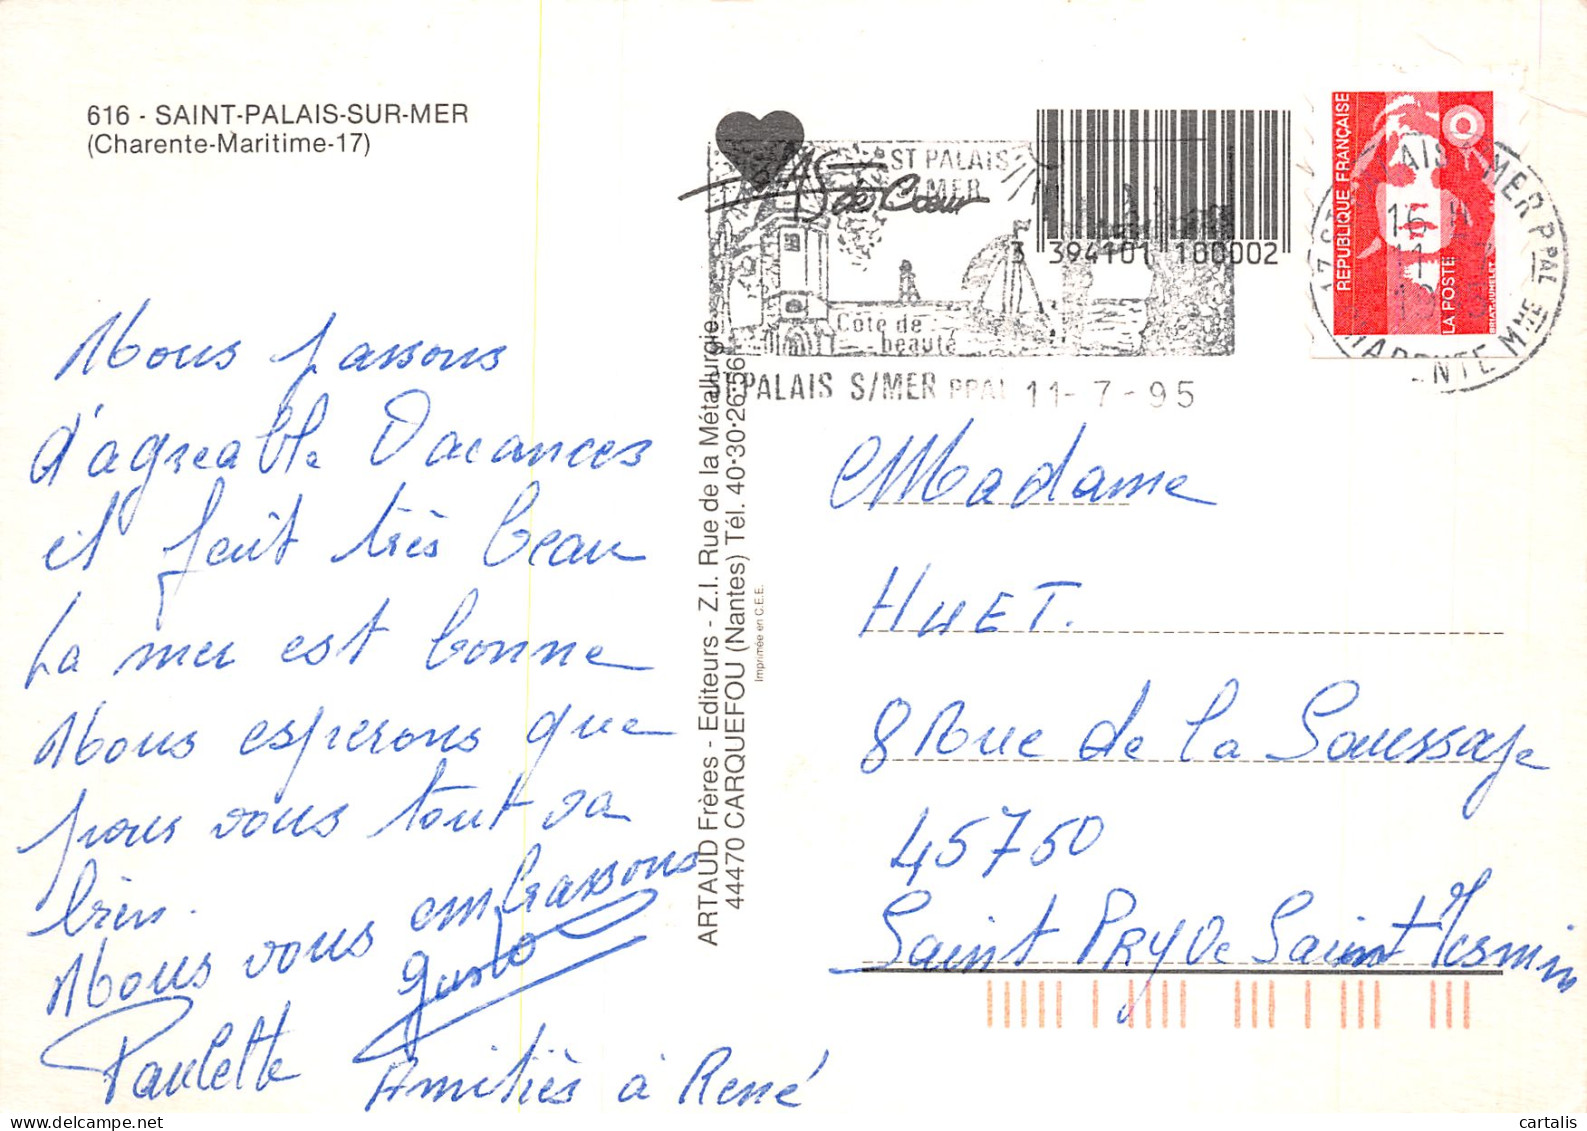 616 - SAINT-PALAIS-SUR-MER
(Charente-Maritime-17)
Nous passons
d'agreable Vacances
il fait très beau
La mer est bonne
Nous esperons que
pour vous tout va
bien.
Nous vous embrassons
Paulette
Amitiès à René
ARTAUD Frères - Editeurs - Z.I. Rue de la Métallurgie
44470 CARQUEFOU (Nantes) Tél. 40·30·26·56
Imprimée en C.E.E.
AS de Cœur
ST PALAIS
S/MER
Cote de
beauté
ST PALAIS S/MER PPAL 11-7-95
3 394101 180002
REPUBLIQUE FRANÇAISE
LA POSTE
BRIAT-JUMELET
16 H
11
Madame
HUET.
8 Rue de la Saussaje
45750
Saint PRYVe Saint Mesmin
cartalis